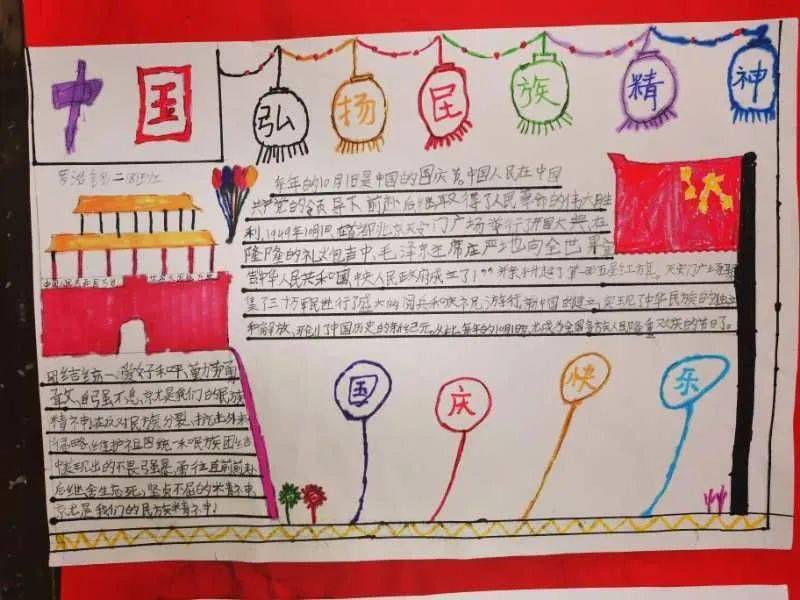 中国
弘扬民族精神
二班
每年的10月1日是中国的国庆节中国人民在中国
共产党的领导下,前赴后继,取得了人民革命的伟大胜
利,1949年10月1日在首都北京天安门广场举行开国大典,在
隆隆的礼炮声中,毛泽东主席庄严地向全世界宣
中华人民共和国中央人民政府成立了 并亲手升起了第一面五星红旗。天安门广场
集了三十万军民进行了盛大的阅兵和庆祝游行。新中国的建立,实现了中华民族的独立
和解放,开创了中国历史的新纪元。从此,每年的10月1日,成为全国各族人民隆重欢庆的节日了。
团结统一、爱好和平、勤劳勇
敢、自强不息,这就是我们的民族
精神,在反对民族分裂,抗击外来
侵略,维护祖国统一和民族团结
中表现出的不畏强暴,勇往直前前赴
后继舍生忘死,坚贞不屈的精神,
这就是我们的民族精神!
国庆快乐